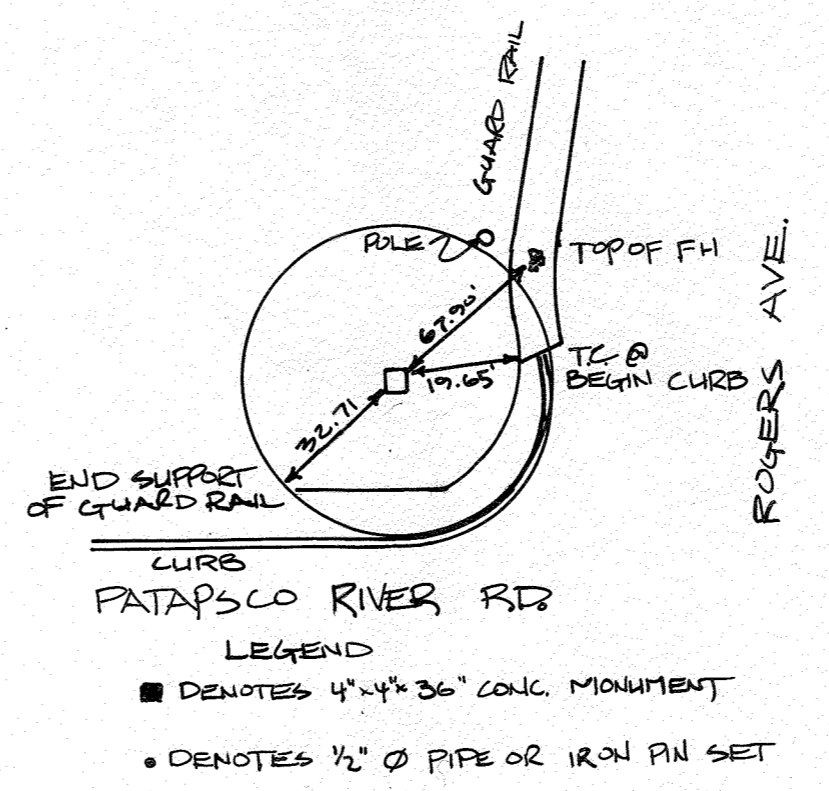 GUARD RAIL
POLE
TOP OF FH
67.90'
T.C. @
BEGIN CURB
19.65'
32.71
END SUPPORT
OF GUARD RAIL
ROGERS AVE.
CURB
PATAPSCO RIVER RD.
LEGEND
DENOTES 4"x4"x36" CONC. MONUMENT
DENOTES 1/2" Ø PIPE OR IRON PIN SET